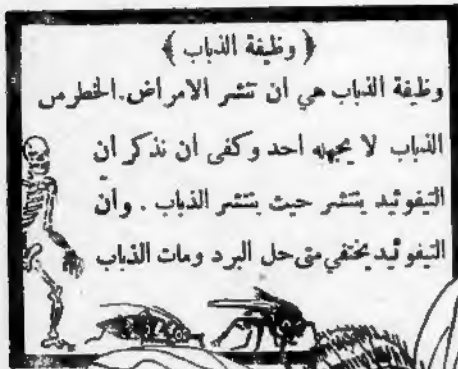 ﴿ وظيفة الذباب ﴾
وظيفة الذباب هي ان تنشر الامراض . الخطر من
الذباب لا يجهله احد وكفى ان نذكر ان
التيفوئيد ينتشر حيث ينتشر الذباب . وان
التيفوئيد يختفي متى حل البرد ومات الذباب